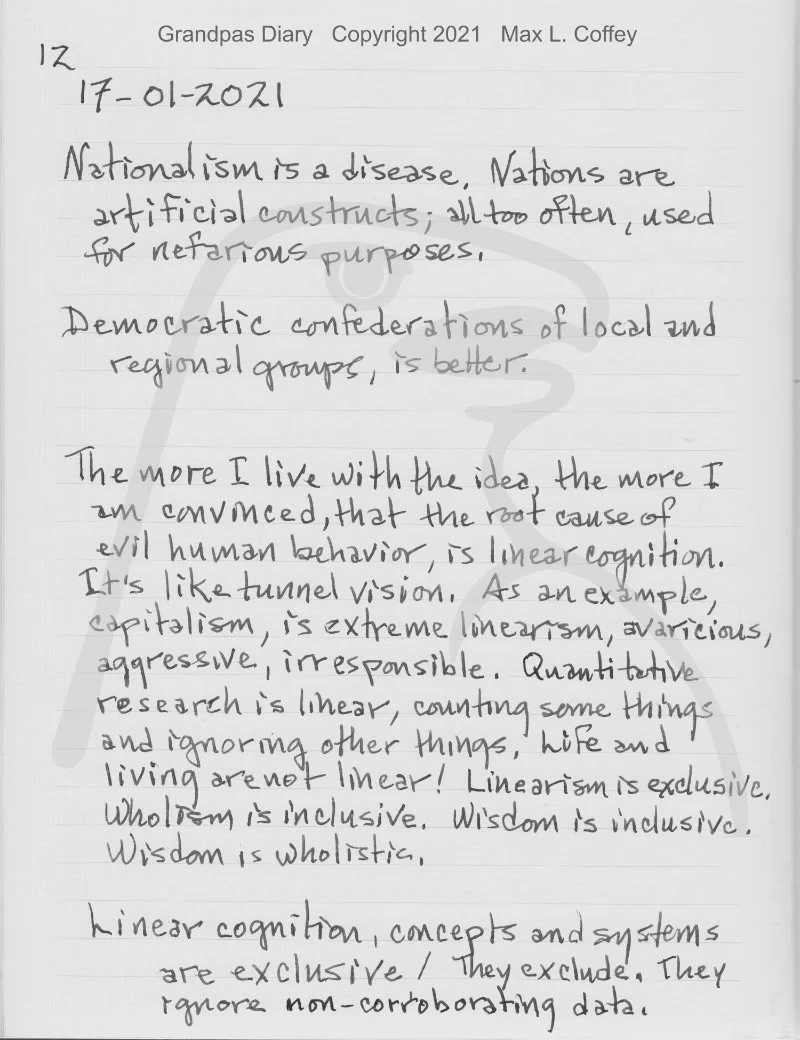 Grandpas Diary Copyright 2021 Max L. Coffey
12
17-01-2021
Nationalism is a disease. Nations are
artificial constructs; all too often, used
for nefarious purposes.
Democratic confederations of local and
regional groups, is better.
The more I live with the idea, the more I
am convinced, that the root cause of
evil human behavior, is linear cognition.
It's like tunnel vision. As an example,
capitalism, is extreme linearism, avaricious,
aggressive, irresponsible. Quantitative
research is linear, counting some things
and ignoring other things. Life and
living are not linear! Linearism is exclusive.
Wholism is inclusive. Wisdom is inclusive.
Wisdom is wholistic.
Linear cognition, concepts and systems
are exclusive / They exclude. They
ignore non-corroborating data.